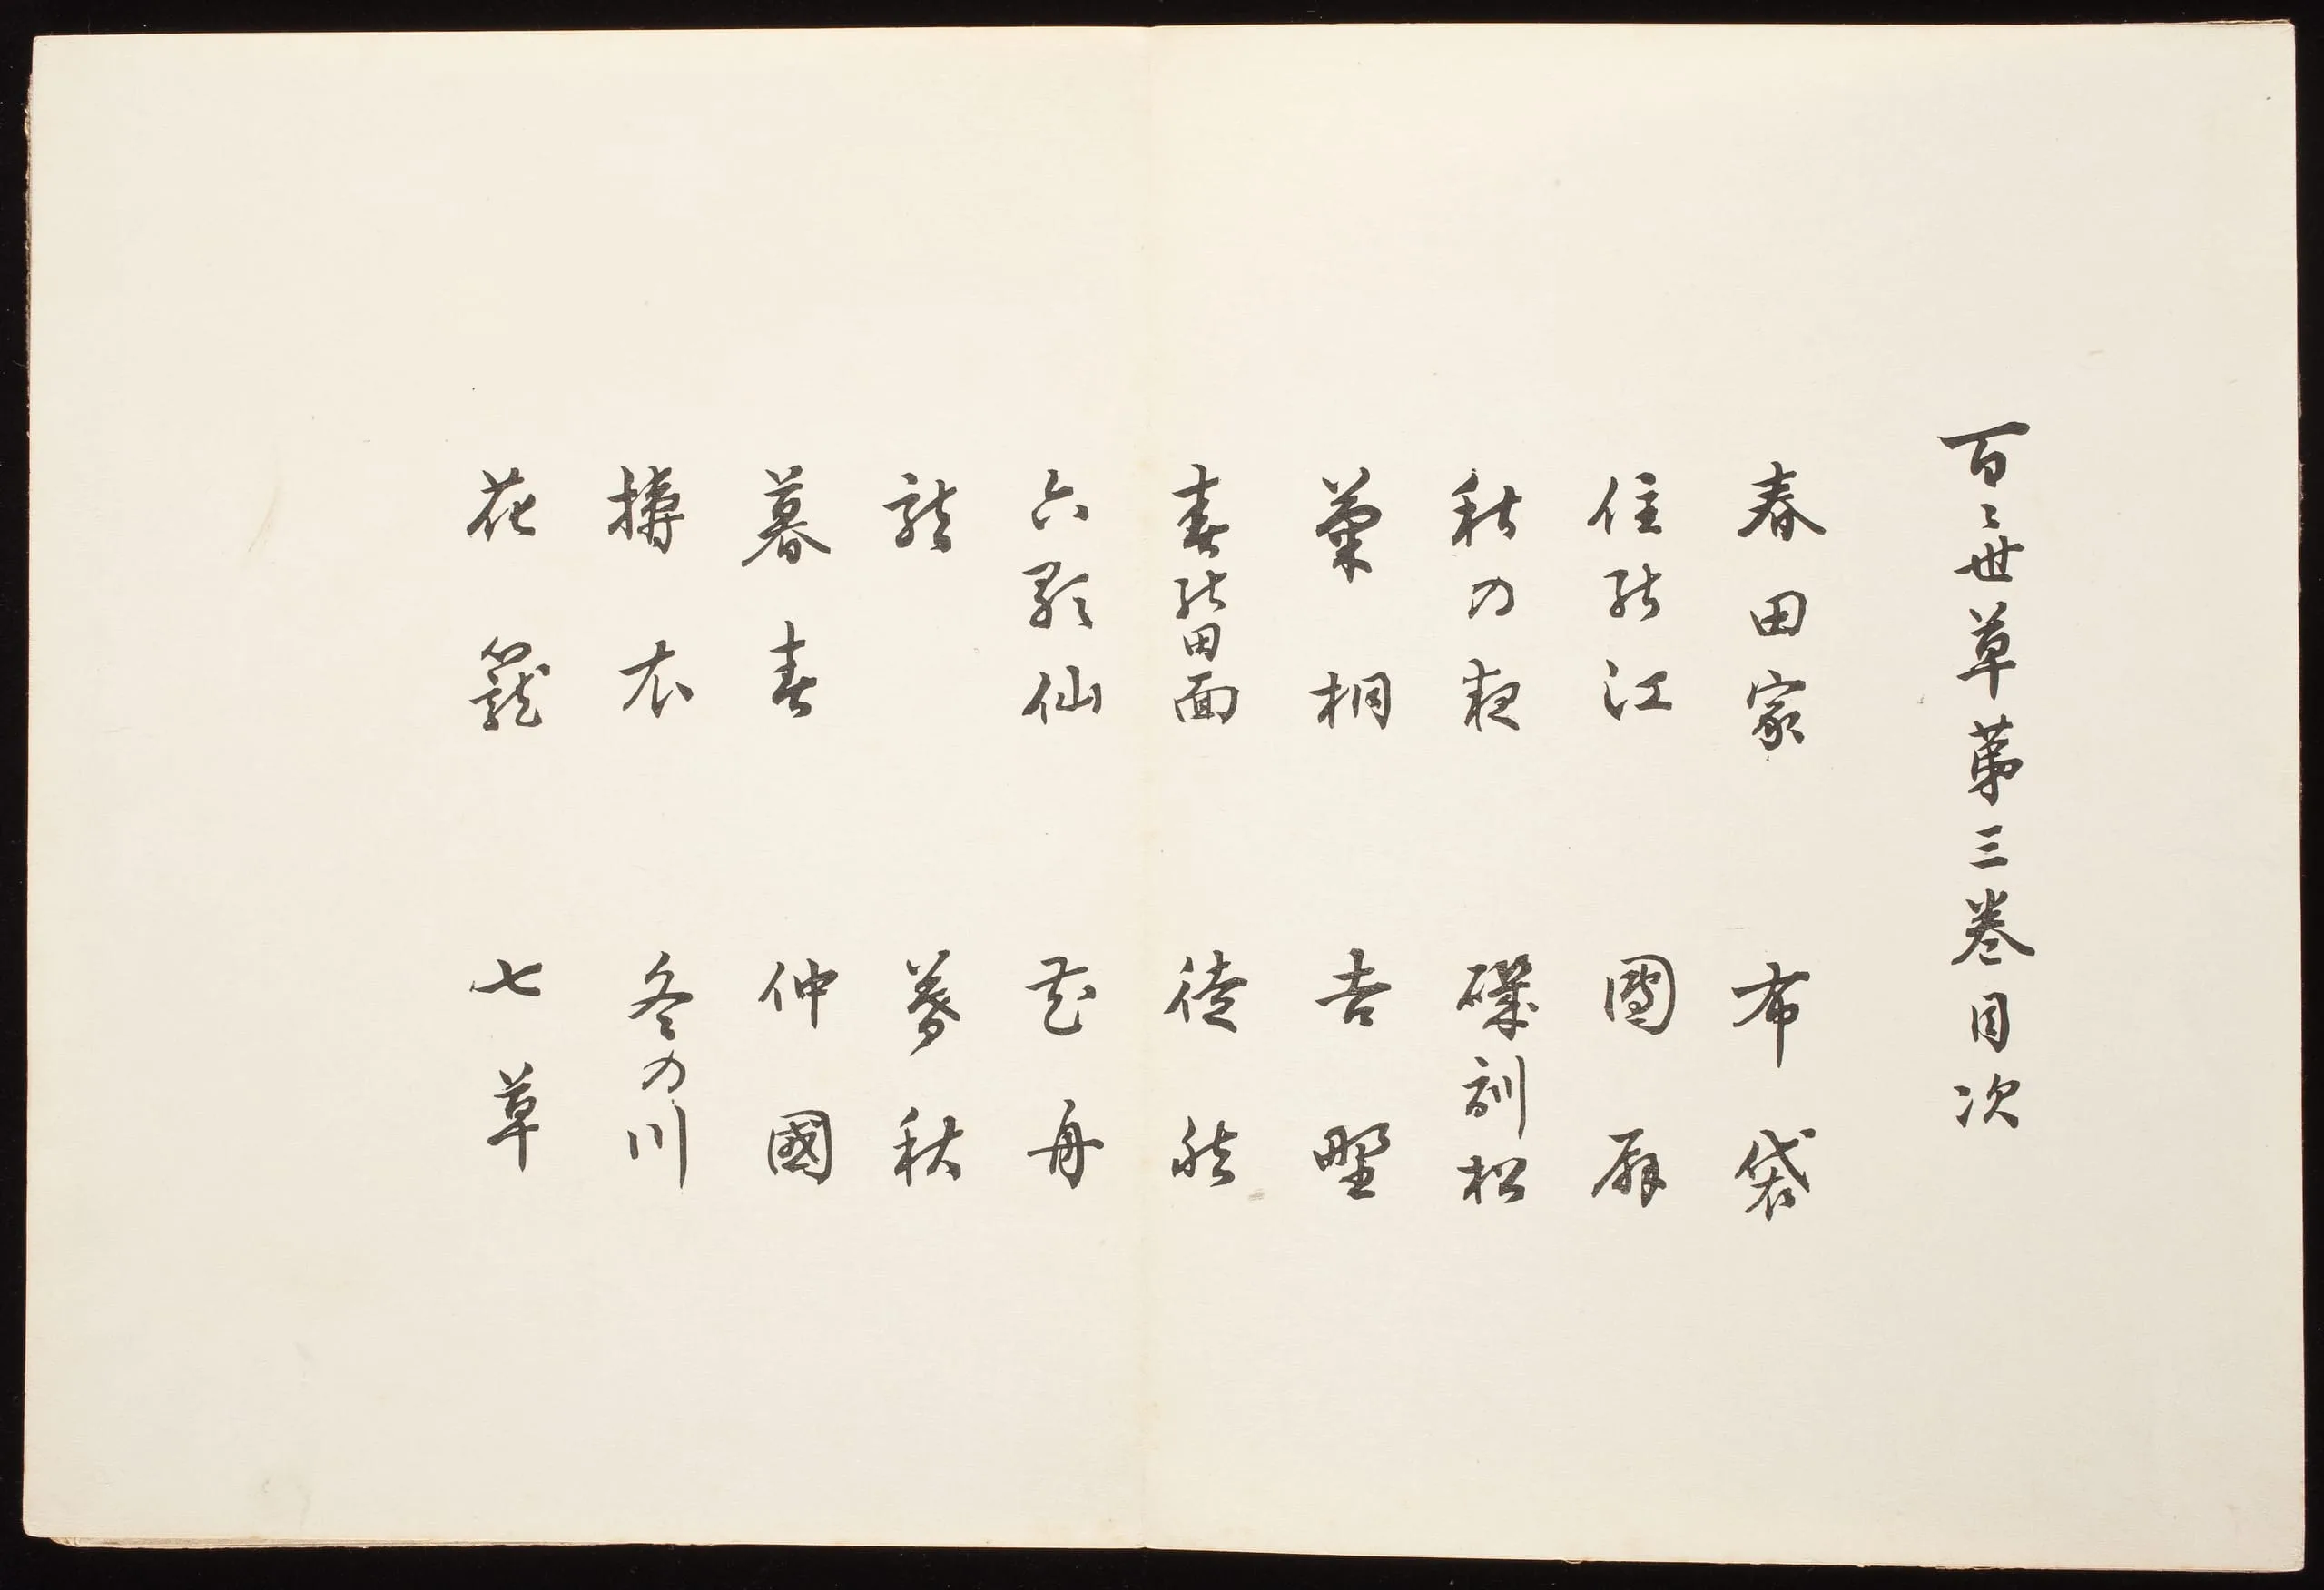 百〻世草第三巻目次
春田家　布袋
住能江　團扇
秋の夜　磯訓松
菊桐　吉野
春能田面　徒然
六歌仙　花舟
龍　暮秋
暮春　仲國
擣衣　冬の川
花籠　七草